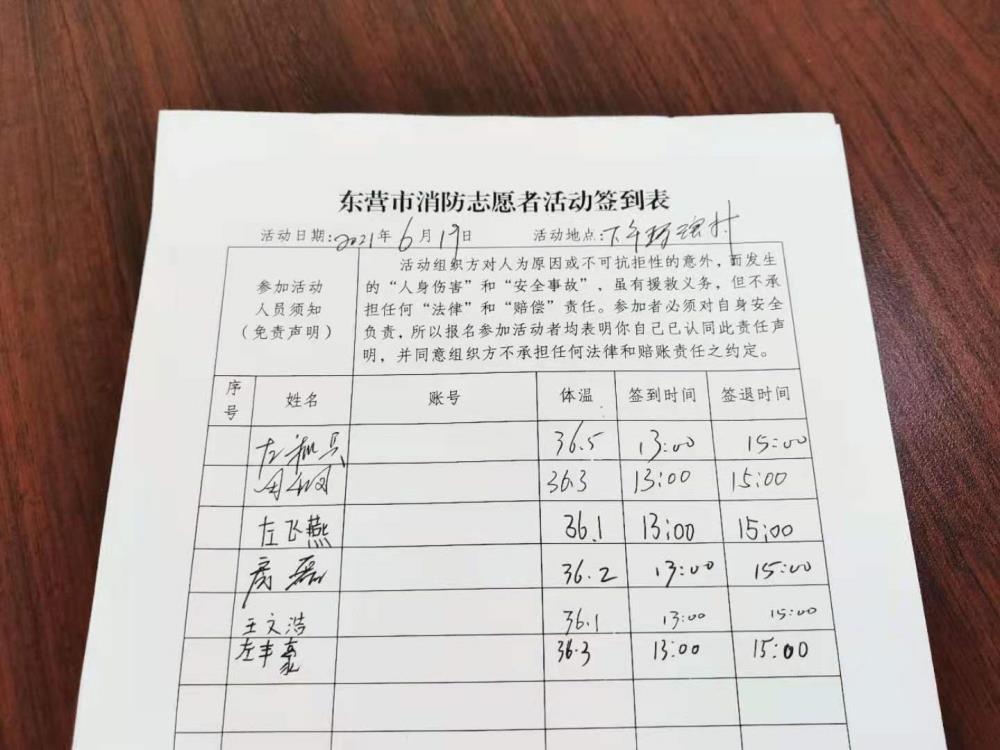 东营市消防志愿者活动签到表
活动日期：2021年6月19日 活动地点：
参加活动
人员须知
（免责声明）
活动组织方对人为原因或不可抗拒性的意外，而发生
的“人身伤害”和“安全事故”，虽有援救义务，但不承
担任何“法律”和“赔偿”责任。参加者必须对自身安全
负责，所以报名参加活动者均表明你自己已认同此责任声
明，并同意组织方不承担任何法律和赔账责任之约定。
序号 姓名 账号 体温 签到时间 签退时间
36.5 13:00 15:00
36.3 13:00 15:00
左飞燕 36.1 13:00 15:00
房磊 36.2 13:00 15:00
王文浩 36.1 13:00 15:00
左丰豪 36.3 13:00 15:00